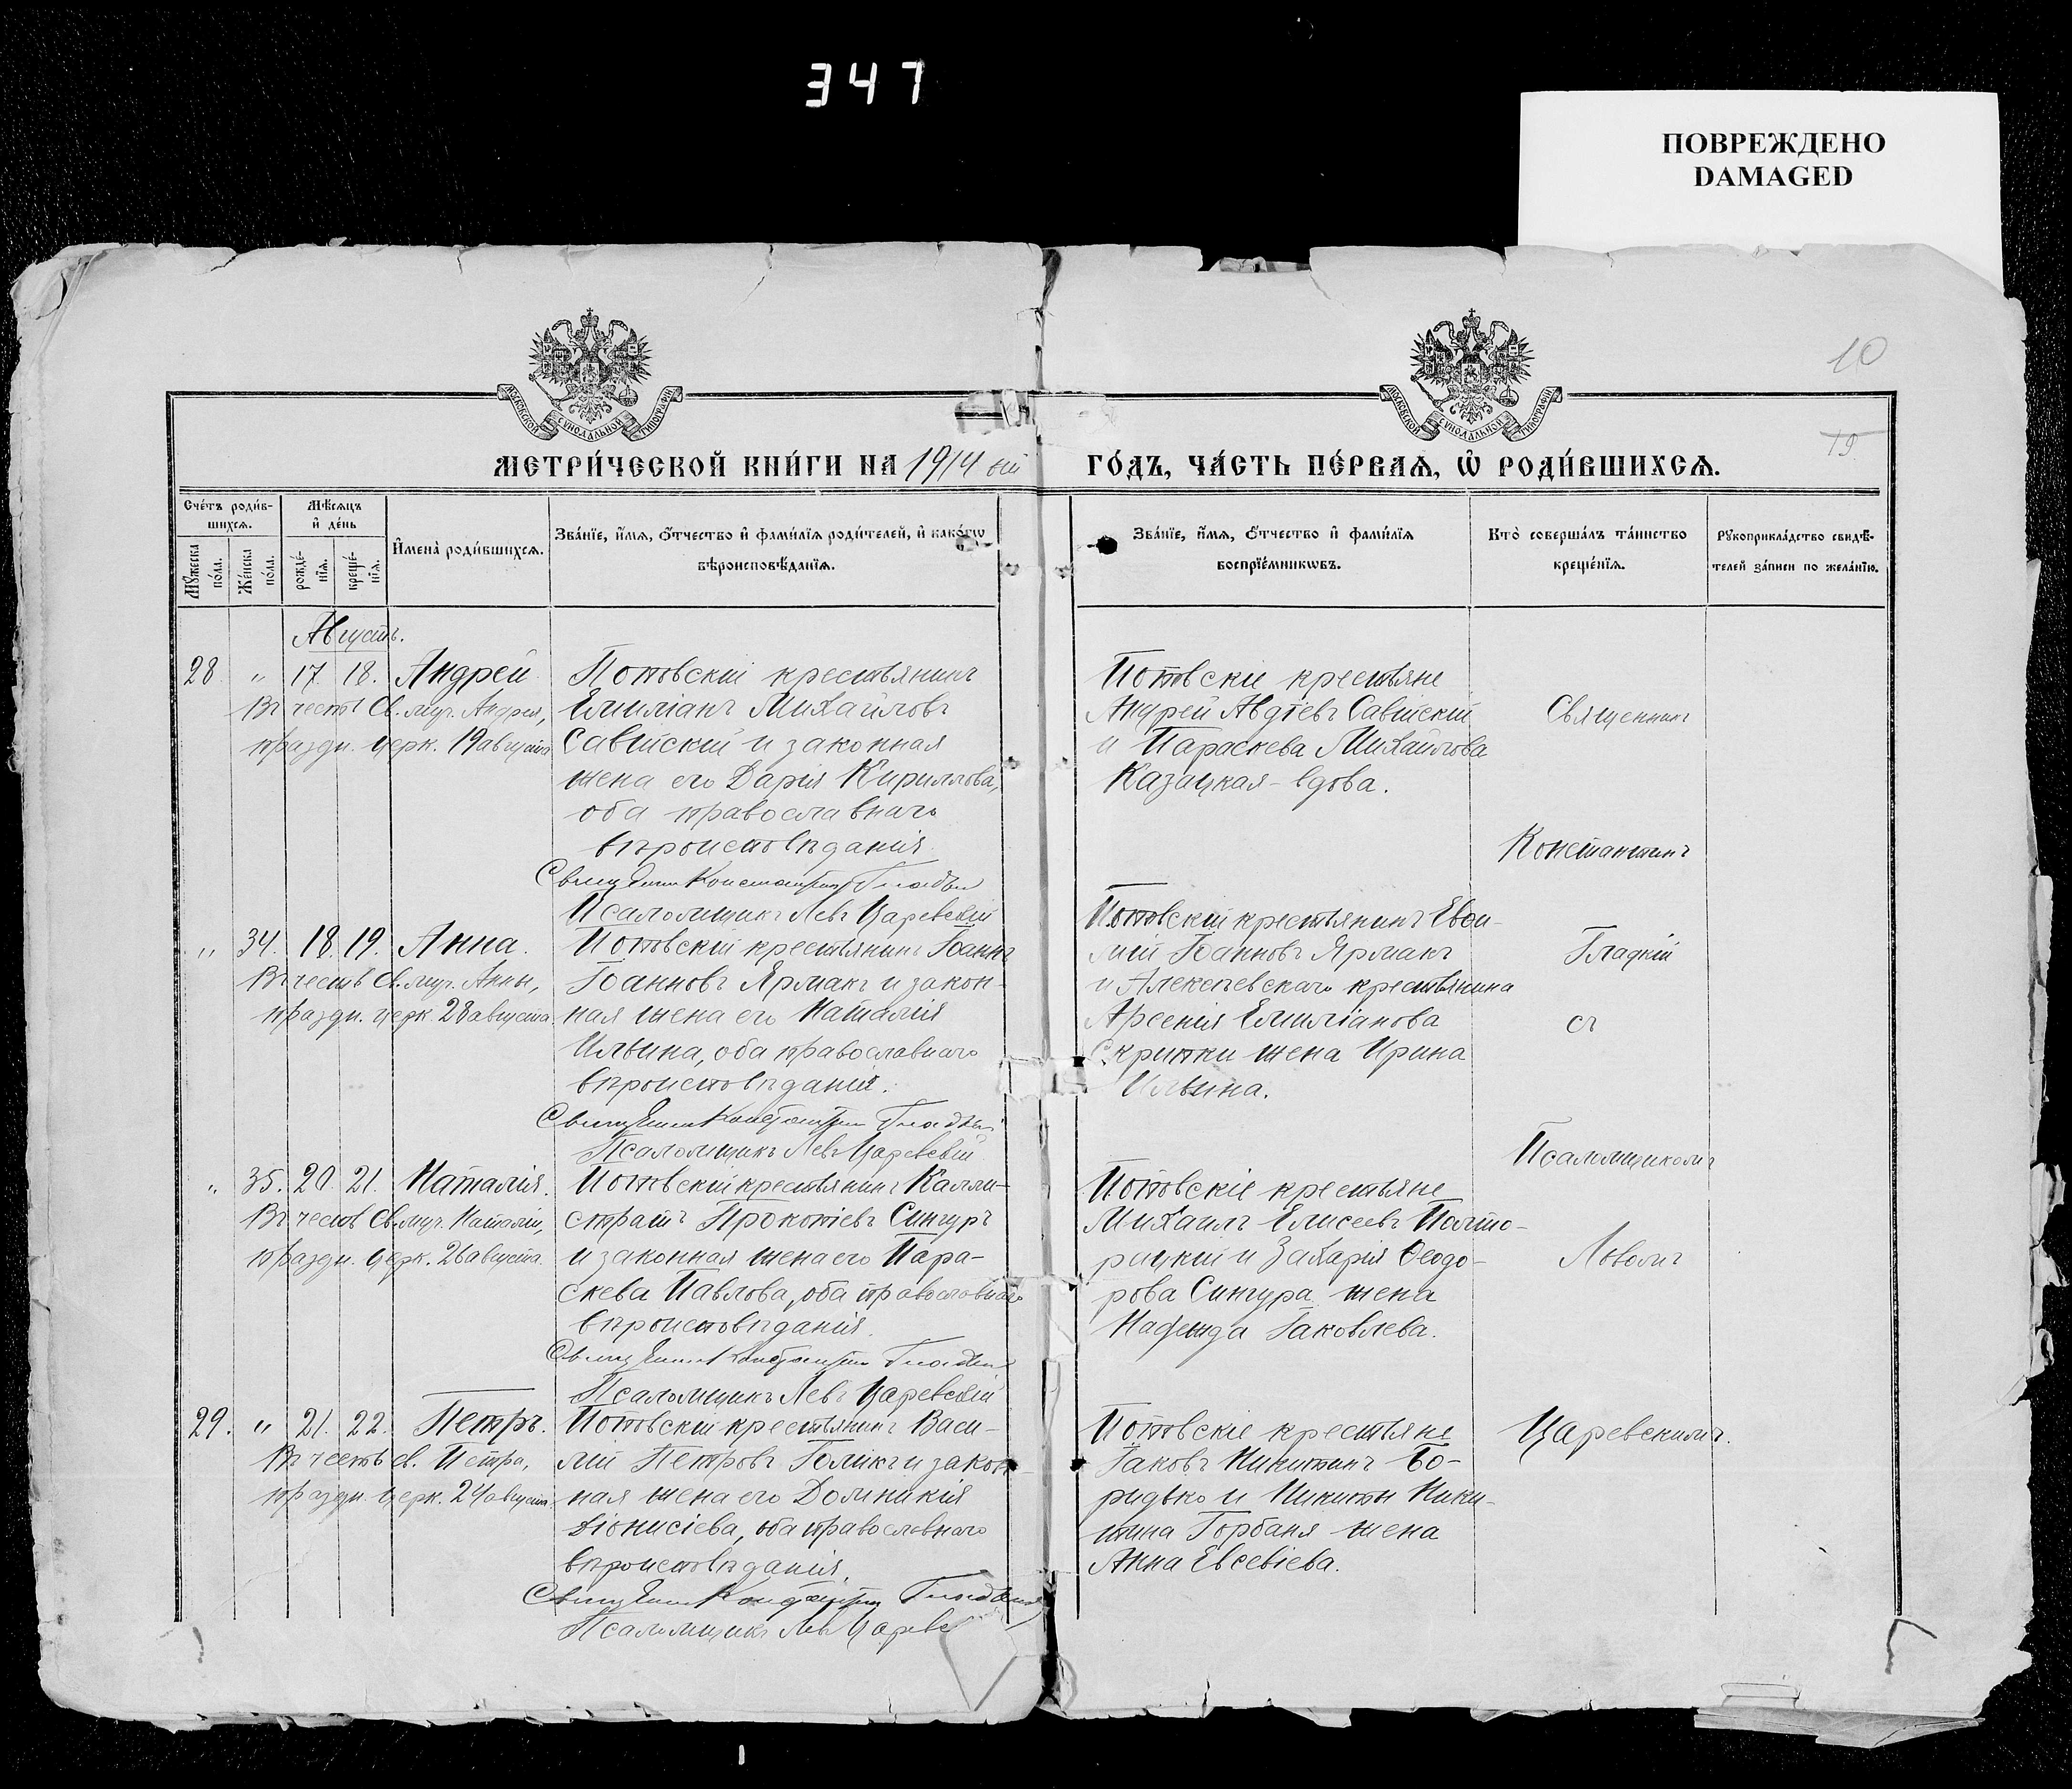 347
ПОВРЕЖДЕНО
DAMAGED
10
МОСКОВСКОЙ СѴНОДАЛЬНОЙ ТИПОГРАФІИ
МОСКОВСКОЙ СѴНОДАЛЬНОЙ ТИПОГРАФІИ
МЕТРИ́ЧЕСКОЙ КНИ́ГИ НА 1914 ый
ГО́ДЪ, ЧА́СТЬ ПЕ́РВАѦ, Ѡ҆ РОДИ́ВШИХСѦ.
Сче́тъ роди́в-
шихсѧ.
Мꙋжеска по́ла.
Же́нска по́ла.
Мѣ́сѧцъ
и҆ де́нь
рожде́-нїѧ.
креще́-нїѧ.
И҆мена̀ роди́вшихсѧ.
Зва́нїе, и҆́мѧ, ѻ҆́тчество и҆ фами́лїѧ роди́телей, и҆ како́гѡ
вѣроисповѣ́данїѧ.
Зва́нїе, и҆́мѧ, ѻ҆́тчество и҆ фами́лїѧ
воспрїе́мникѡвъ.
Кто̀ соверша́лъ та́инство
креще́нїѧ.
Рꙋкоприкла́дство свидѣ́-
телей за́писи по жела́нїю.
Августъ.
28 " 17. 18. Андрей
Въ честь Св. муч. Андрея,
праздн. церк. 19 августа
Поповскій крестьянинъ
Емиліанъ Михайловъ
Савицскій и законная
жена его Дарія Кириллова,
оба православнаго
вѣроисповѣданія.
Священникъ Константинъ Гладкій
Псаломщикъ Левъ Царевскій
Поповскіе крестьяне
Андрей Авдіевъ Савицскій
и Параскева Михайлова
Казацкая - вдова.
Священникъ
Константинъ
" 34. 18. 19. Анна.
Въ честь Св. муч. Анны,
праздн. церк. 28 августа.
Поповскій крестьянинъ Іоаннъ
Іоанновъ Ярмакъ и закон-
ная жена его Наталія
Ильина, оба православнаго
вѣроисповѣданія.
Священникъ Константинъ Гладкій
Псаломщикъ Левъ Царевскій
Поповскій крестьянинъ Евѳи-
мій Іоанновъ Ярмакъ
и Алексѣевскаго крестьянина
Арсенія Емиліанова
Скрипки жена Ирина
Ильина.
Гладкій
съ
Псаломщикомъ
" 35. 20. 21. Наталія.
Въ честь Св. муч. Наталіи,
праздн. церк. 26 августа.
Поповскій крестьянинъ Калли-
стратъ Прокопіевъ Сингуръ
и законная жена его Пара-
скева Павлова, оба православнаго
вѣроисповѣданія.
Священникъ Константинъ Гладкій
Псаломщикъ Левъ Царевскій
Поповскіе крестьяне
Михаилъ Елисеевъ Полто-
рацкій и Захарія Ѳеодо-
рова Сингура жена
Надежда Іаковлева.
Львомъ
29. " 21. 22. Петръ.
Въ честь св. Петра,
праздн. церк. 24 августа.
Поповскій крестьянинъ Васи-
лій Петровъ Голикъ и закон-
ная жена его Домникія
Діонисіева, оба православнаго
вѣроисповѣданія.
Священникъ Константинъ Гладкій
Псаломщикъ Левъ Царевс
Поповскіе крестьяне
Іаковъ Никитинъ Бо-
ридько и Никиты Ники-
тина Горбаня жена
Анна Евсевіева.
Царевскимъ.